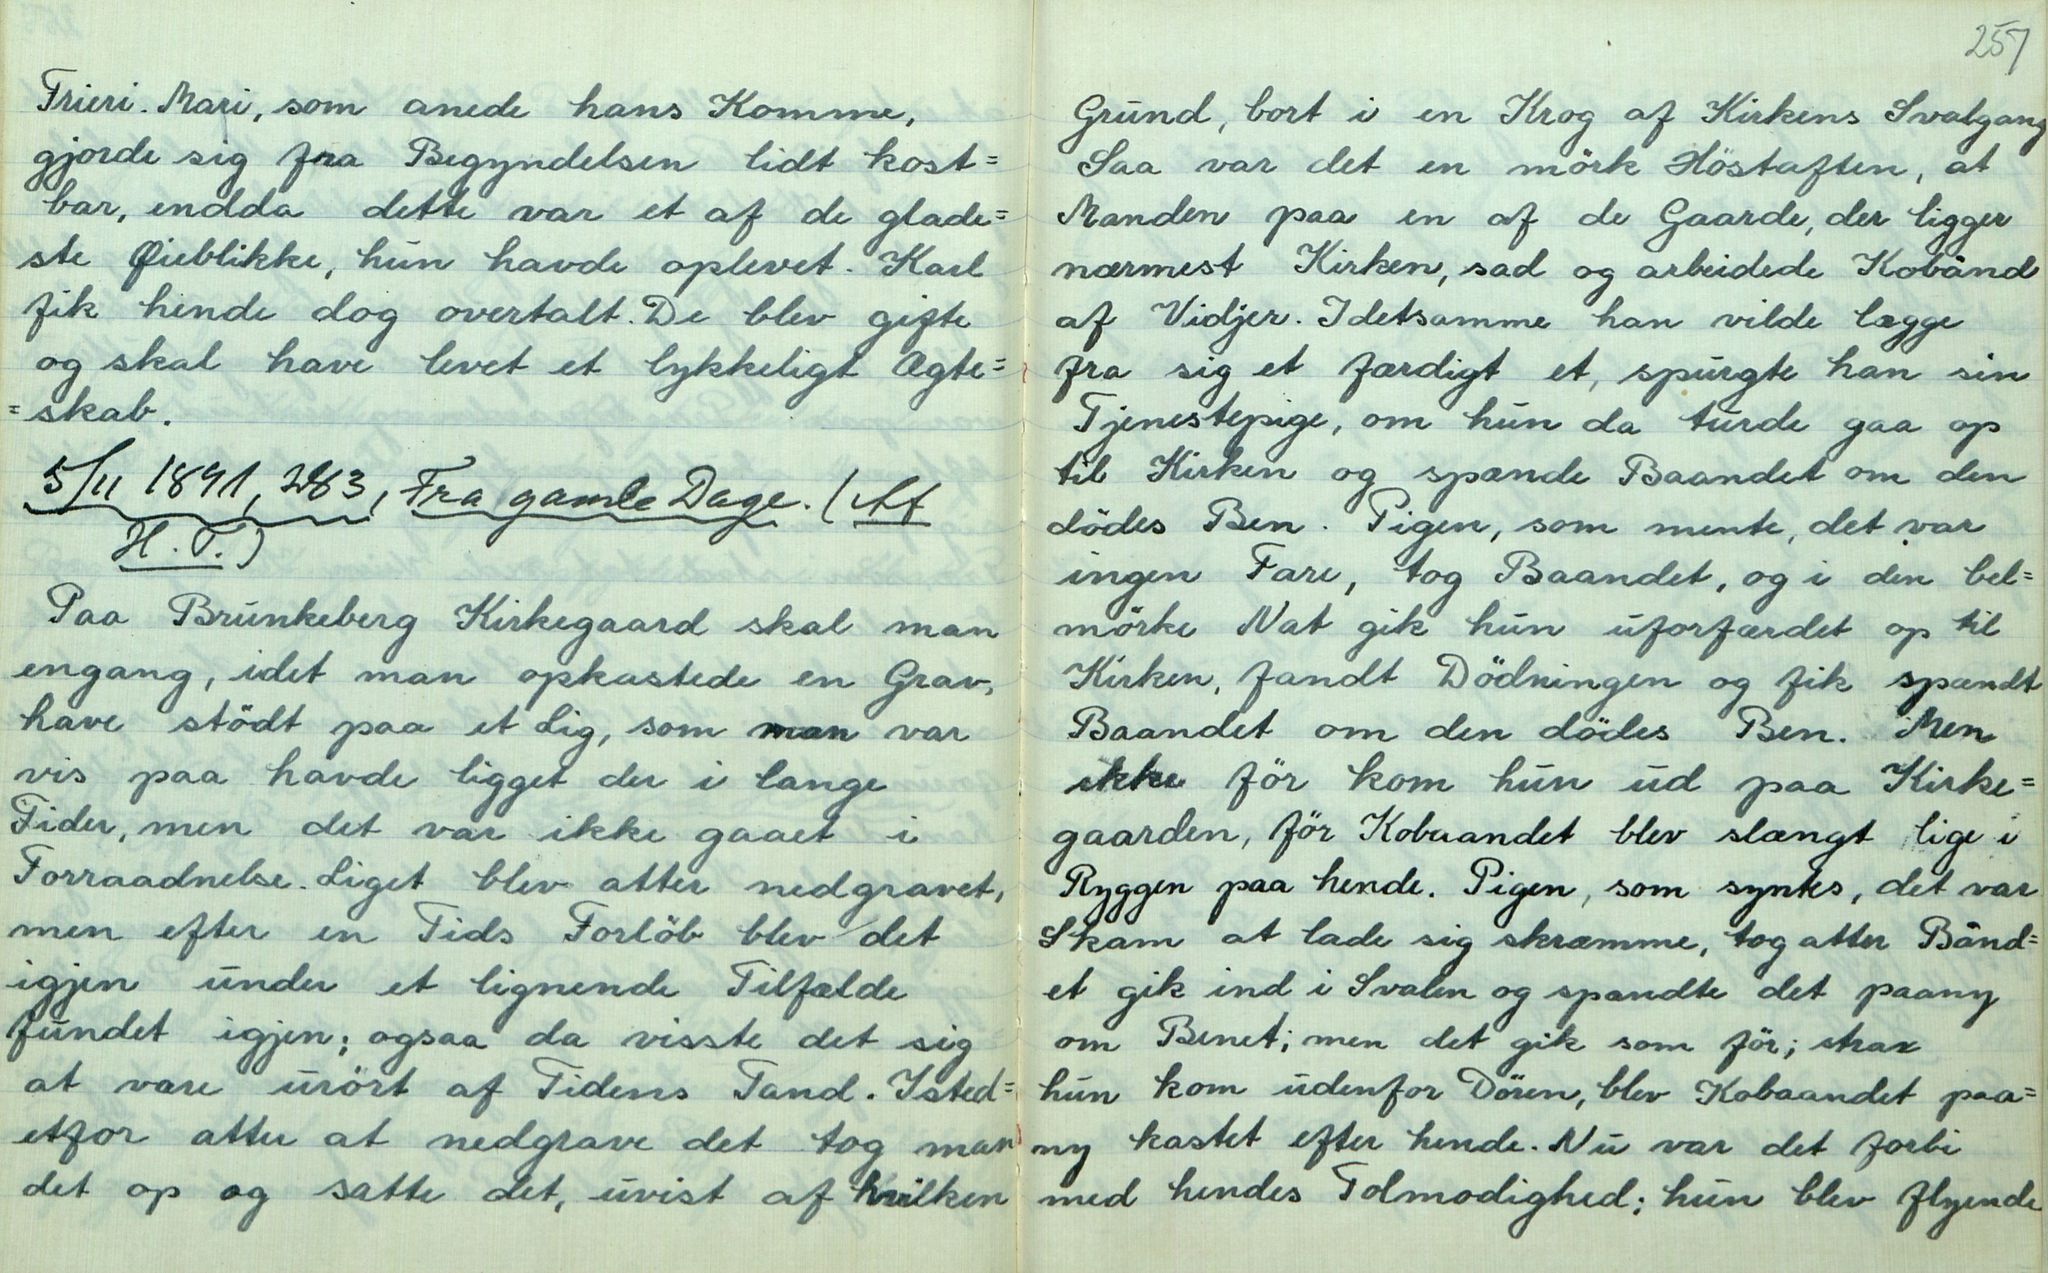 Frieri. Mari, som anede hans Komme,
gjorde sig fra Begyndelsen lidt kost=
bar, endda dette var et af de glade=
ste Øieblikke, hun havde oplevet. Karl
fik hende dog overtalt. De blev gifte
og skal have levet et lykkeligt Ægte=
=skab.
5/11 1891, 283, Fra gamle Dage. (Af
H. T.)
Paa Brunkeberg Kirkegaard skal man
engang, idet man opkastede en Grav,
have stödt paa et Lig, som man var
vis paa havde ligget der i lange
Tider, men det var ikke gaaet i
Forraadnelse. Liget blev atter nedgravet,
men efter en Tids Forlöb blev det
igjen under et lignende Tilfælde
fundet igjen; ogsaa da visste det sig
at være urört af Tidens Tand. Isted=
etfor atter at nedgrave det tog man
det op og satte det, uvist af hvilken
257
Grund, bort i en Krog af Kirkens Svalgang
Saa var det en mörk Höstaften, at
Manden paa en af de Gaarde, der ligger
nærmest Kirken, sad og arbeidede Kobånd
af Vidjer. Idetsamme han vilde lægge
fra sig et færdigt et, spurgte han sin
Tjenestepige, om hun da turde gaa op
til Kirken og spænde Baandet om den
dödes Ben. Pigen, som mente, det var
ingen Fare, tog Baandet, og i den bel=
mörke Nat gik hun uforfærdet op til
Kirken, fandt Dödningen og fik spændt
Baandet om den dödes Ben. Men
ikke för kom hun ud paa Kirke=
gaarden, för Kobaandet blev slængt lige i
Ryggen paa hende. Pigen, som syntes, det var
Skam at lade sig skræmme, tog atter Bånd=
et gik ind i Svalen og spændte det paany
om Benet; men det gik som för; strax
hun kom udenfor Dören, blev Kobaandet paa=
ny kastet efter hende. Nu var det forbi
med hendes Tolmodighed; hun blev flyende